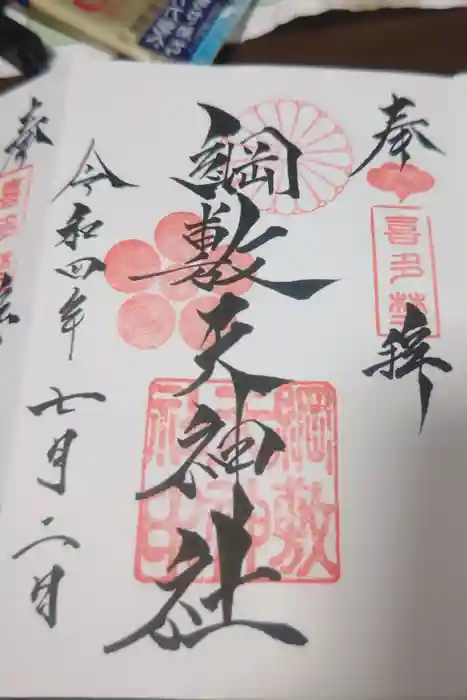 奉拝
喜多埜
綱敷天神社
綱敷天神社印
令和四年 七月二日
奉